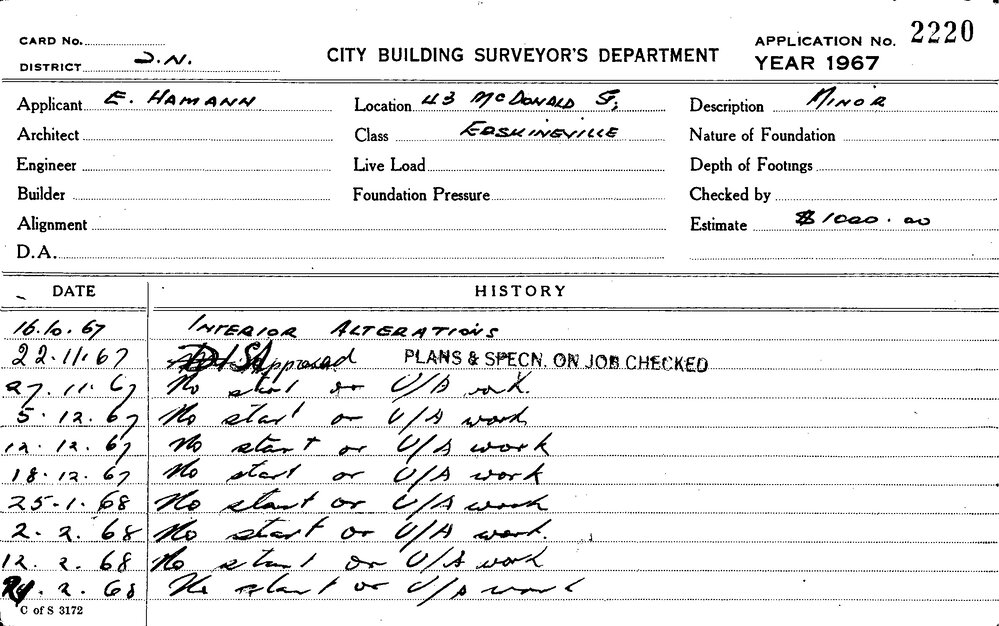 CARD No.
DISTRICT D.N.
CITY BUILDING SURVEYOR'S DEPARTMENT
APPLICATION No. 2220
YEAR 1967
Applicant E. HAMANN Location 43 McDONALD St, Description MINOR
Architect Class ERSKINEVILLE Nature of Foundation
Engineer Live Load Depth of Footings
Builder Foundation Pressure Checked by
Alignment Estimate $1000.00
D.A.
DATE HISTORY
16.10.67 INTERIOR ALTERATIONS
22.11.67 Approved PLANS & SPECN. ON JOB CHECKED
27.11.67 No start or U/A work.
5.12.67 No start or U/A work
12.12.67 No start or U/A work
18.12.67 No start or U/A work
25.1.68 No start or U/A work
2.2.68 No start or U/A work.
12.2.68 No start or U/A work
.2.68 No start or U/A work
C of S 3172